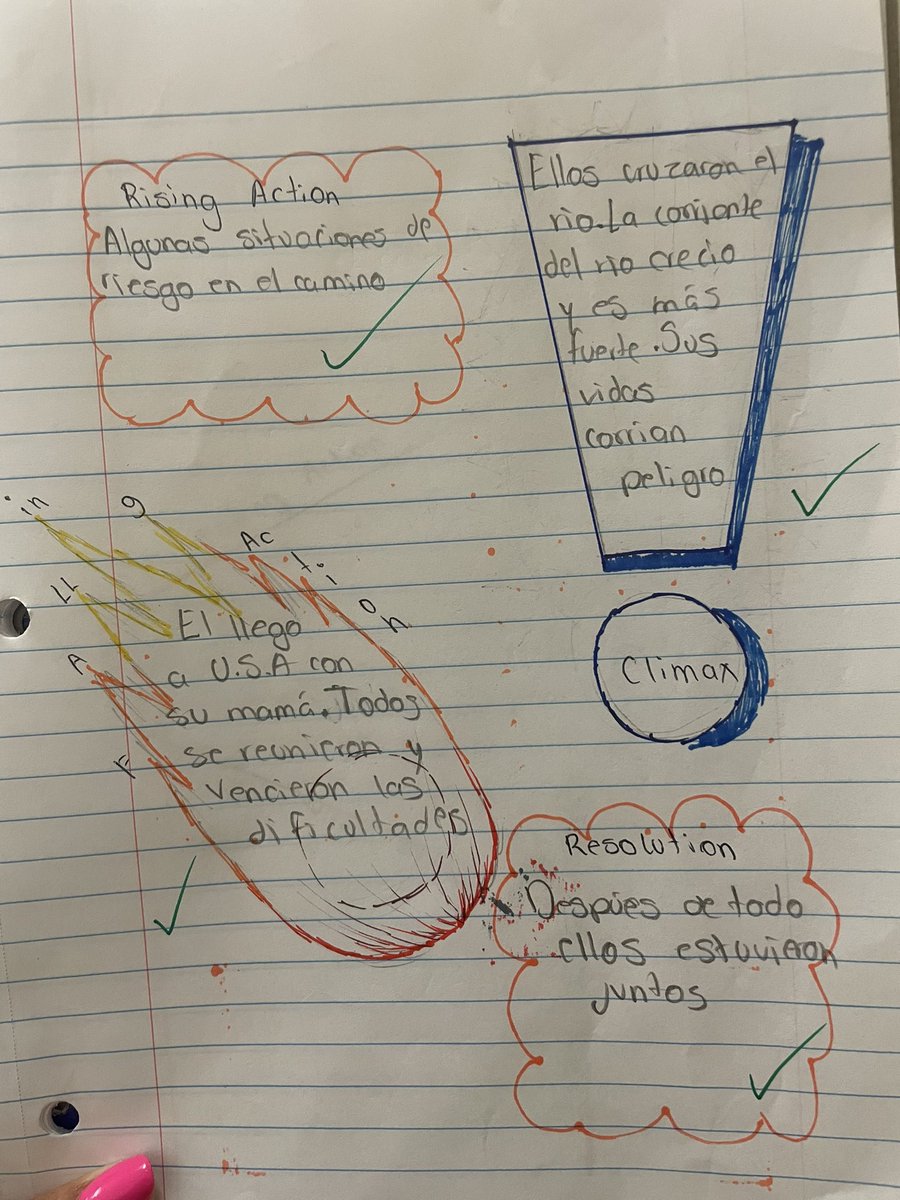 Rising Action
Algunas situaciones de
riesgo en el camino
Ellos cruzaron el
rio. La corriente
del rio crecio
y es más
fuerte. Sus
vidas
corrian
peligro
Climax
FALLing Action
El llego
a U.S.A con
su mamá. Todos
se reunieron y
vencieron las
dificultades
Resolution
Despúes de todo
ellos estuvieron
juntos